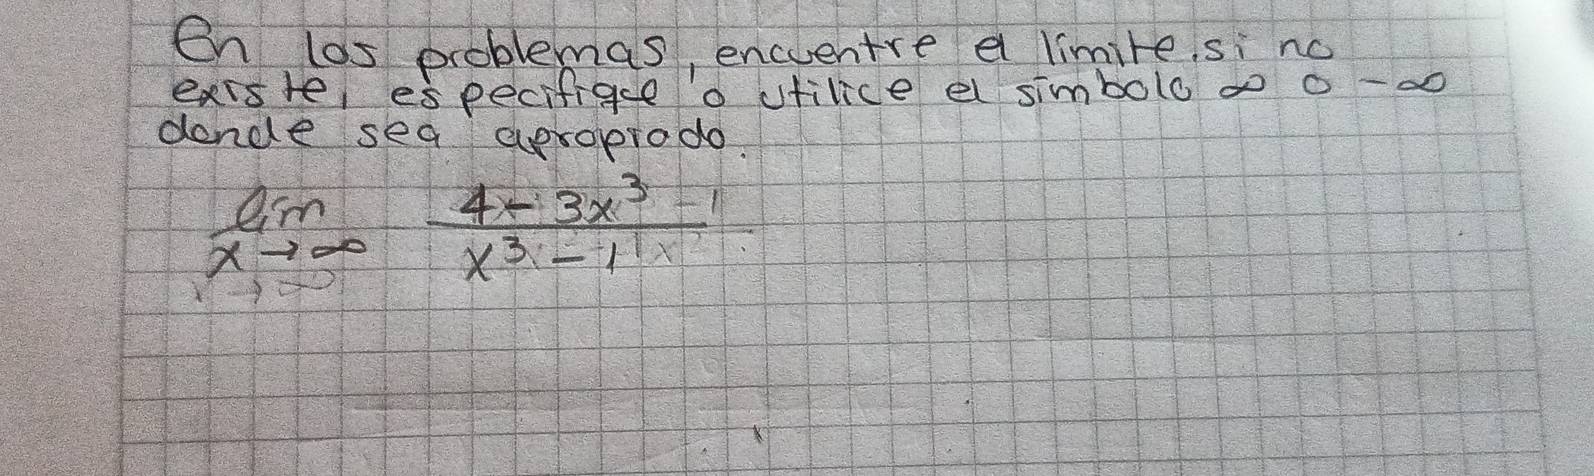 En los problemas, encuentre el límite, si no
existe, especifique o utilice el símbolo ∞ o -∞
donde sea apropiado.
lim 4 - 3x³ - 1
x → ∞ x³ - 1
→ ∞